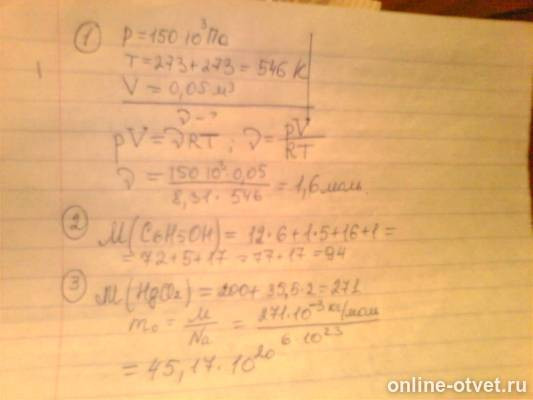 ① P = 150 10³ Па
T = 273 + 273 = 546 K
V = 0,05 м³
ν - ?
pV = νRT ; ν = pV/RT
ν = 150 10³ · 0,05 / 8,31 · 546 = 1,6 моль.
② M(C6H5OH) = 12·6+1·5+16+1 =
= 72+5+17 = 77+17 = 94
③ M(HgCl2) = 200 + 35,5·2 = 271
m₀ = M/Na = 271·10⁻³ кг/моль / 6·10²³
= 45,17·10²⁰
online-otvet.ru